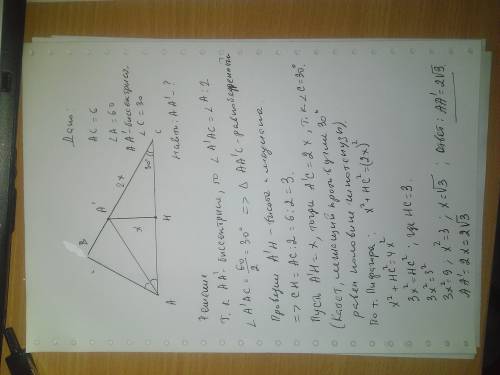 Дано:
AC = 6
∠A = 60
AA' - биссектриса.
∠C = 30
Найти: AA' - ?
B
A'
2x
x
30°
C
H
A
Решение
Т. к. AA' - биссектриса, то ∠A'AC = ∠A : 2
∠A'AC = 60/2 = 30° => △ AA'C - равнобедренный
Проведем A'H - высота и медиана
=> CH = AC : 2 = 6 : 2 = 3.
Пусть A'H = x, тогда A'C = 2x, т. к. ∠C = 30°.
(Катет, лежащий против угла 30°
равен половине гипотенузы).
По т. Пифагора: x² + HC² = (2x)²
x² + HC² = 4x²
3x² = HC², где HC = 3.
3x² = 3²
3x² = 9, x² = 3; x = √3
AA' = 2x = 2√3 ; Ответ: AA' = 2√3.